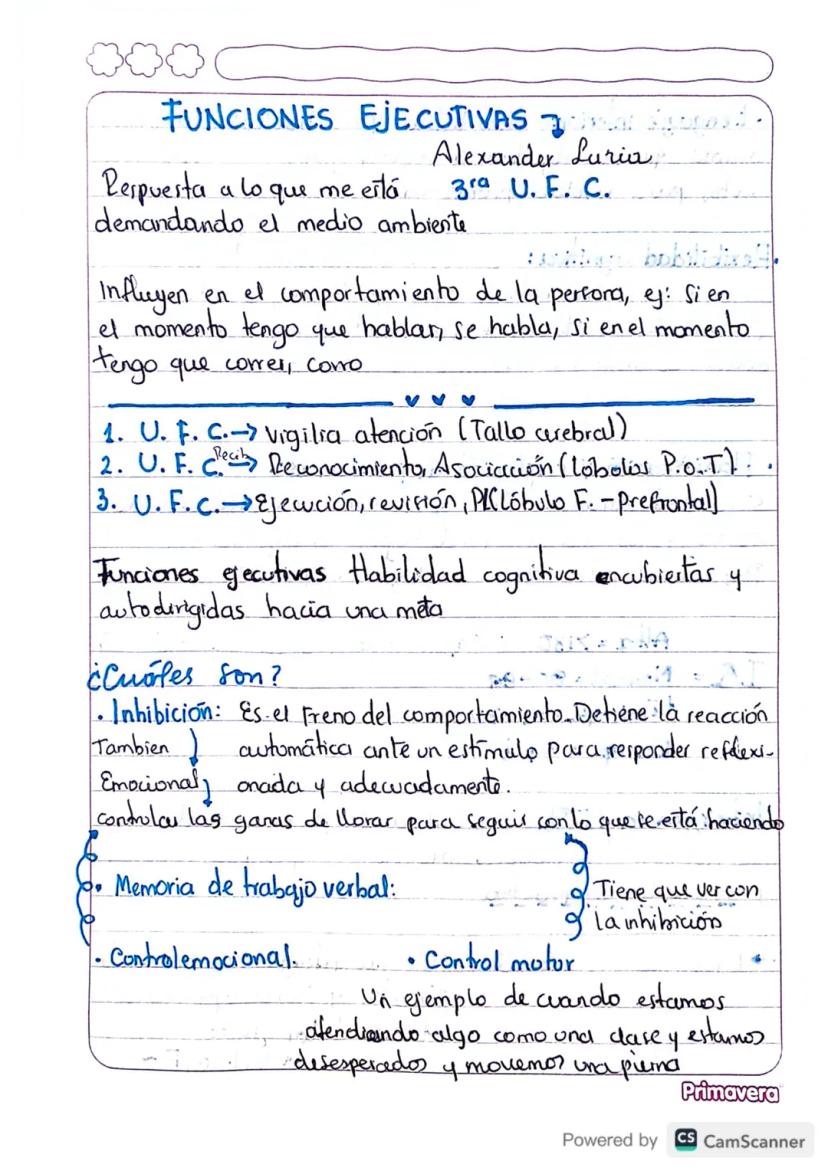 FUNCIONES EJECUTIVAS
Alexander Luria
Respuesta a lo que me está 3ra U. F. C.
demandando el medio ambiente
Influyen en el comportamiento de la persona, ej: Si en
el momento tengo que hablar, se habla, si en el momento
tengo que correr, corro
1. U. F. C. → Vigilia atención (Tallo cerebral)
Recib
2. U. F. C. → Reconocimiento, Asociacción (lóbolos P.O.T).
3. U. F. C. → Ejecución, revisión, (Lóbulo F. - Prefrontal)
Funciones ejecutivas Habilidad cognitiva encubiertas y
autodirigidas hacia una meta
¿Cuáles Son?
• Inhibición: Es el Freno del comportamiento. Detiene la reacción
Tambien automática ante un estímulo para responder reflexi-
Emocional onada y adecuadamente.
controlar las ganas de llorar para seguir con lo que se está haciendo
• Memoria de trabajo verbal:
Tiene que ver con
la inhibición
• Control emocional. • Control motor
Un ejemplo de cuando estamos
atendiando algo como una clase y estamos
desesperados y movemos una pierna
Primavera
Powered by CS CamScanner